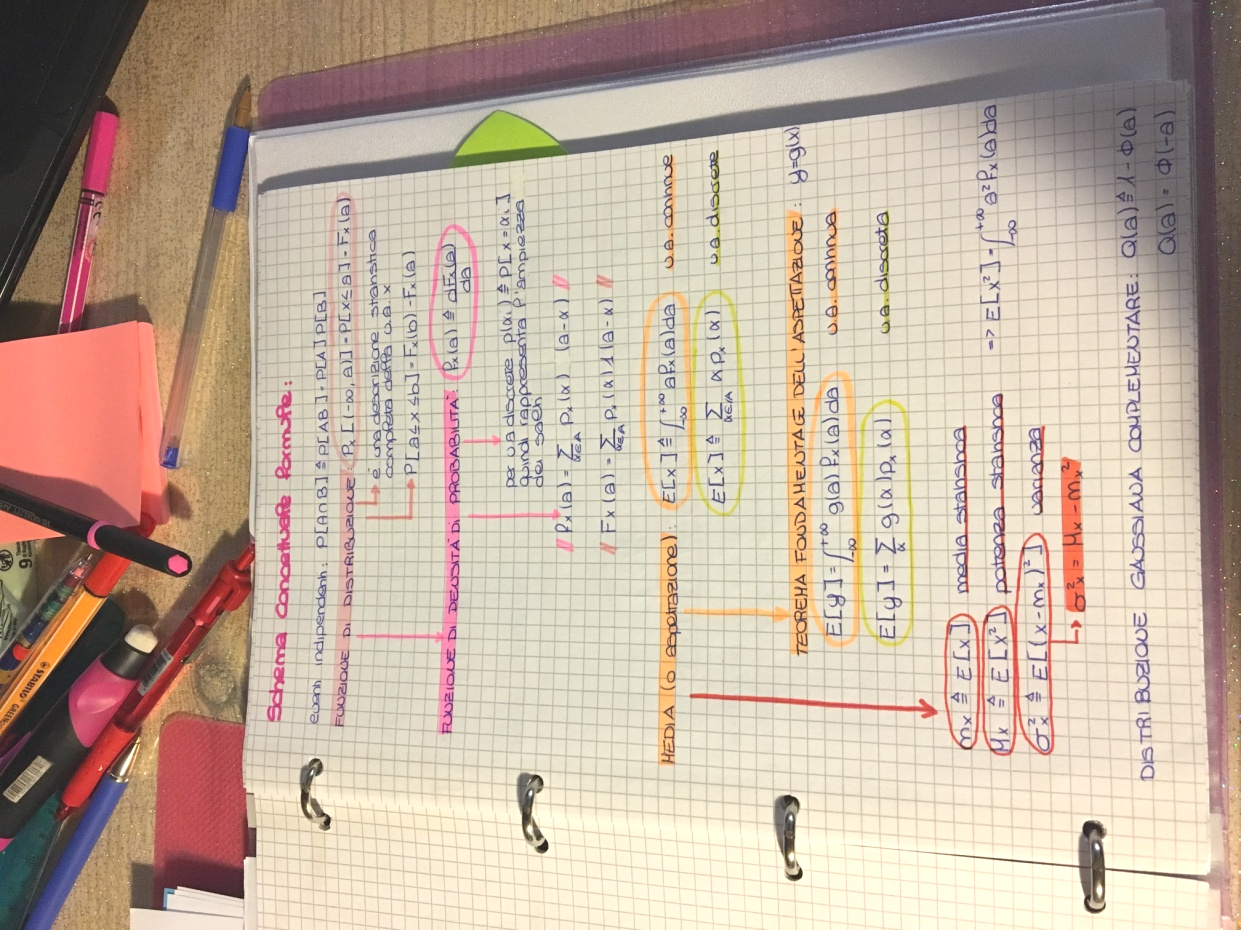 Schema Concettuale Formule:
eventi indipendenti: P[A∩B] ≜ P[AB] = P[A]P[B]
FUNZIONE DI DISTRIBUZIONE: Px[-∞,a)] = P[x≤a] = Fx(a)
è una descrizione statistica
completa della v.a. x
P[a≤x≤b] = Fx(b) - Fx(a)
FUNZIONE DI DENSITÀ DI PROBABILITÀ: Px(a) ≜ dFx(a)/da
per v.a discrete p(αi) ≜ P[x=αi]
quindi rappresenta l'ampiezza
dei salti
" Px(a) = ∑α∈A px(α) (a-α) "
" Fx(a) = ∑α∈A px(α) 1(a-α) "
MEDIA (o aspettazione): E[x] ≜ ∫-∞+∞ a Px(a)da v.a. continue
E[x] ≜ ∑α∈A α px(α) v.a. discrete
TEOREMA FONDAMENTALE DELL'ASPETTAZIONE: y=g(x)
E[y] = ∫-∞+∞ g(a) Px(a)da v.a. continua
E[y] = ∑α g(α) px(α) v.a. discreta
mx ≜ E[x] media statistica
Mx ≜ E[x²] potenza statistica => E[x²] = ∫-∞+∞ a² Px(a)da
σx² ≜ E[(x-mx)²] varianza
σ²x = Mx - mx²
DISTRIBUZIONE GAUSSIANA COMPLEMENTARE: Q(a) ≜ 1 - Φ(a)
Q(a) = Φ(-a)
STABILO